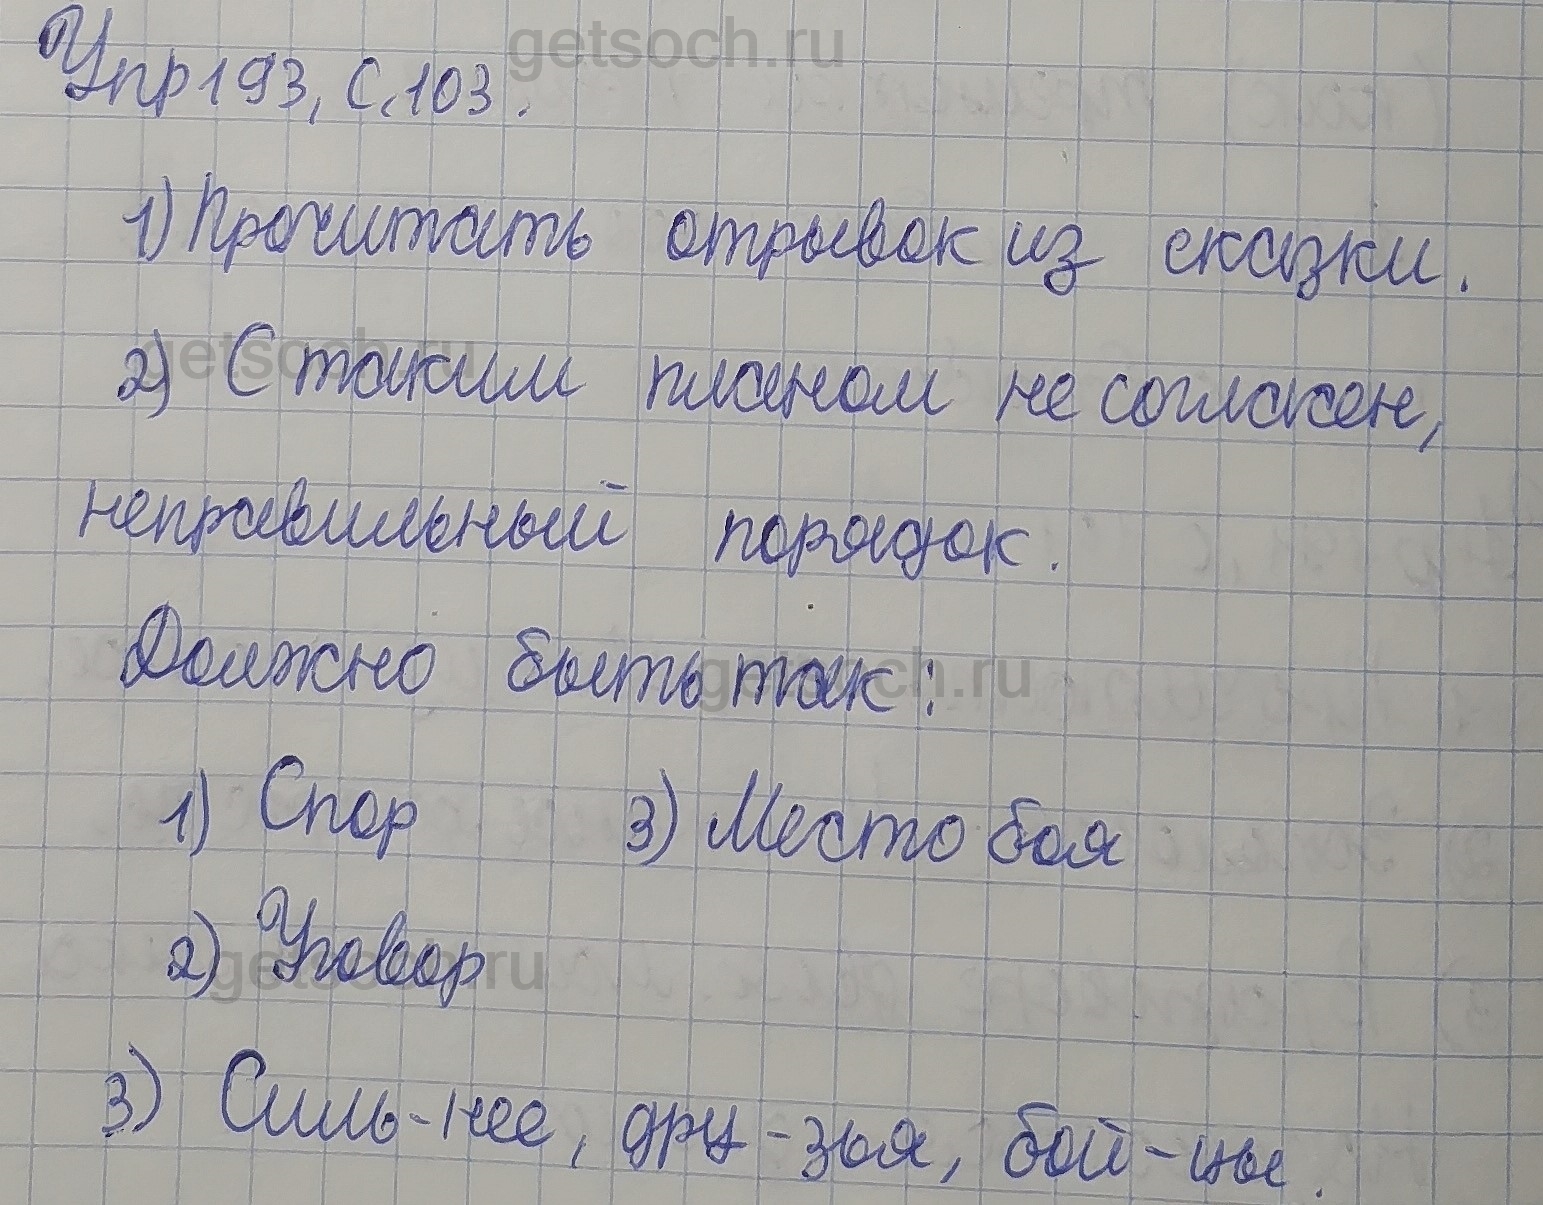 getsoch.ru
Упр 193, с. 103.
1) Прочитать отрывок из сказки.
getsoch.ru
2) С таким планом не согласен,
неправильный порядок.
Должно быть так:
getsoch.ru
1) Спор 3) Место боя
2) Уговор
getsoch.ru
3) Силь-нее, дру-зья, бой-цы.